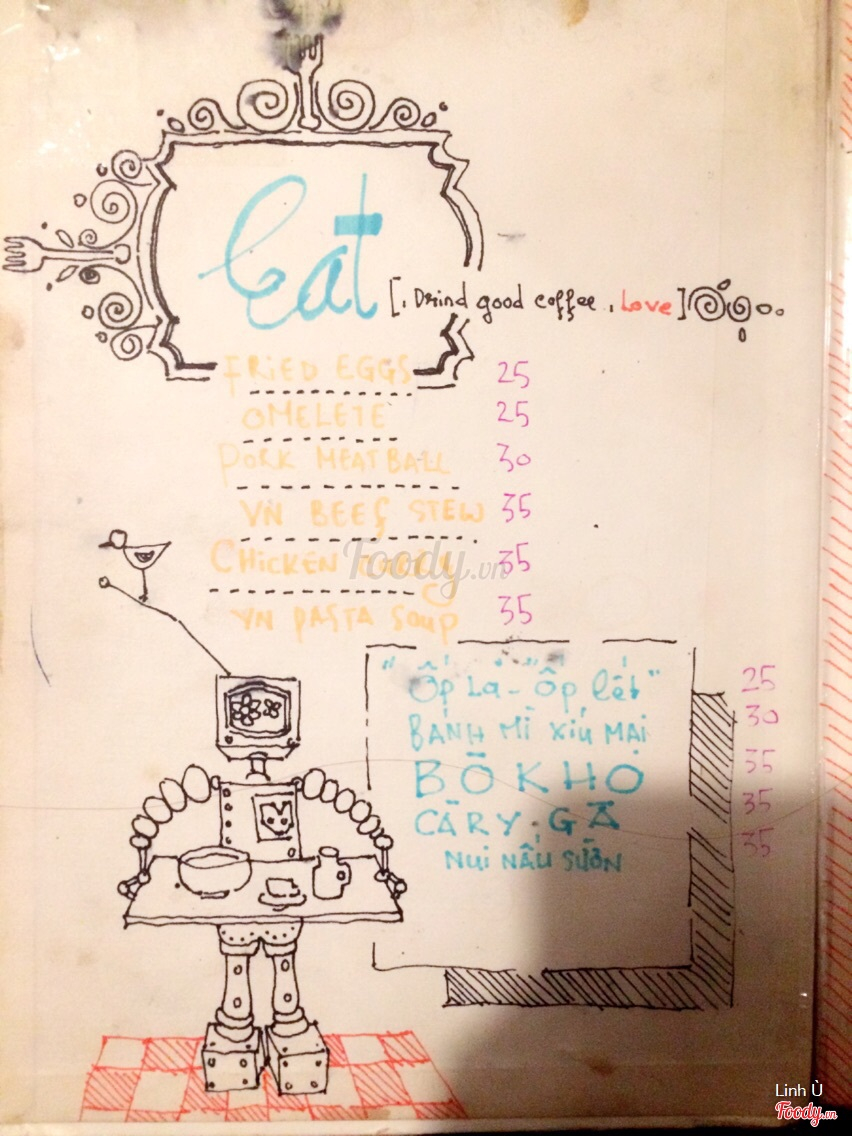 Eat
[, Drind good coffee, Love]
FRIED EGGS 25
OMELETE 25
PORK MEATBALL 30
VN BEEF STEW 35
CHICKEN 35
VN PASTA SOUP 35
"Ốp La - Ốp lết" 25
BÁNH MÌ XÍU MẠI 30
BÒ KHO 35
CÀRY GÀ 35
NUI NẤU SƯỜN 35
Foody.vn
Linh Ù
Foody.vn